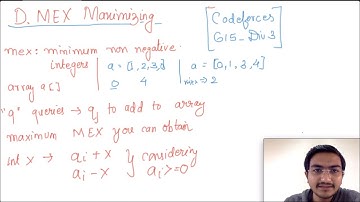 D. MEX Maximizing
[Codeforces
615-Div3]
mex: minimum non negative
integers
a = [1,2,3]
0 4
a = [0,1,3,4]
mex → 2
array a[]
"q" queries → qj to add to array
maximum MEX you can obtain
int X → ai + x } considering
ai - x } ai >= 0